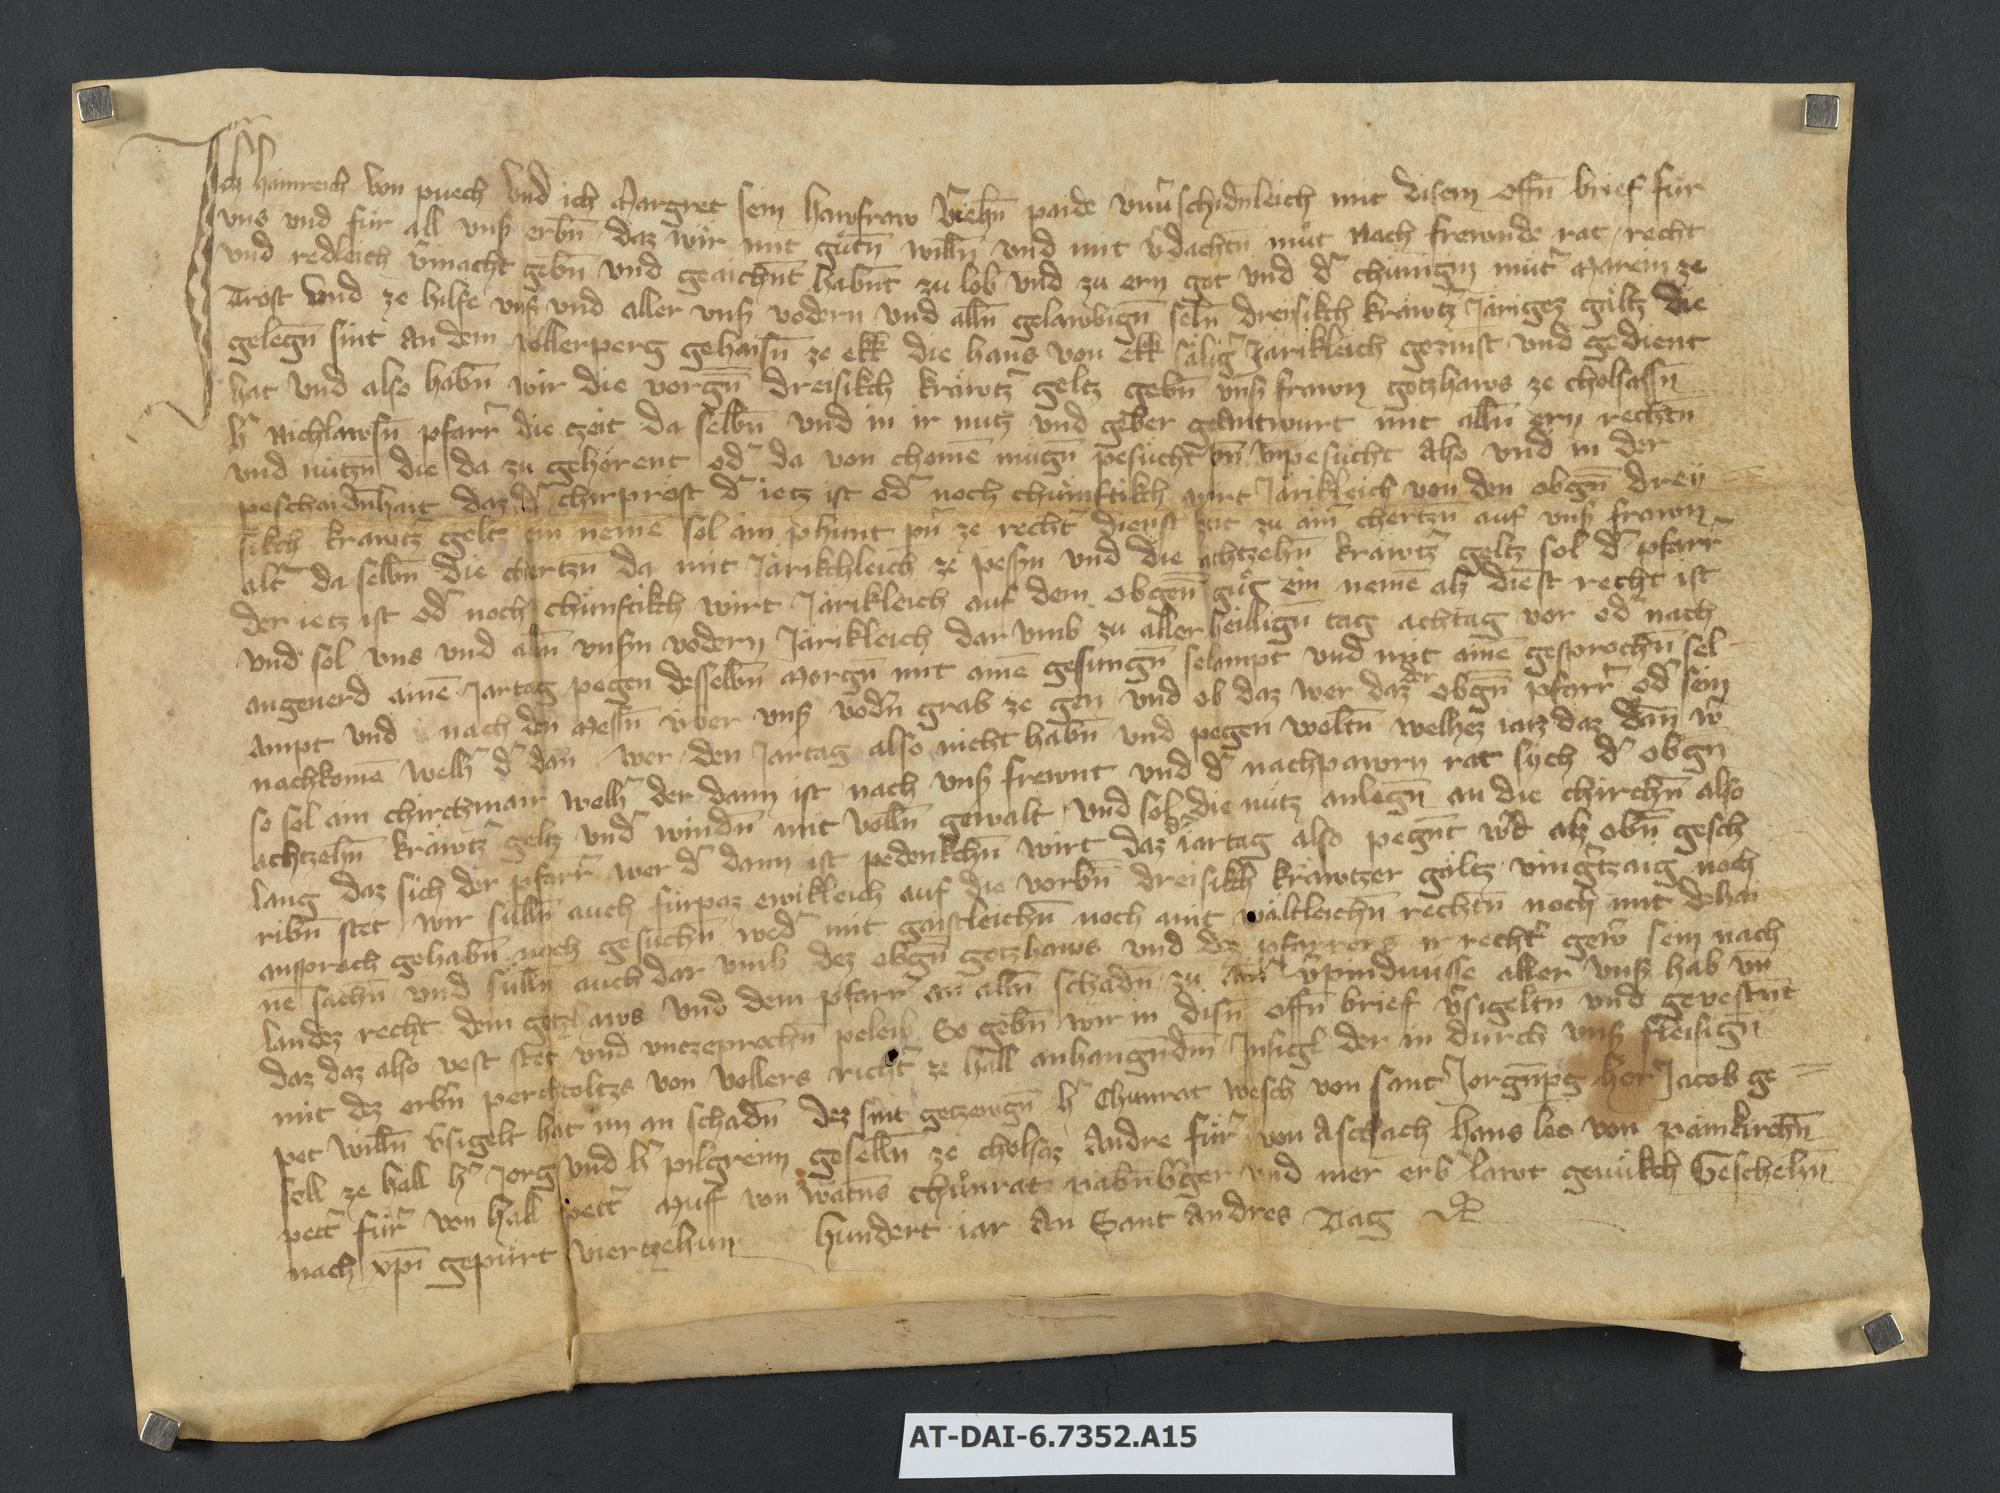 Ich hainreich von puech vnd ich Margret sein hawsfraw v̓iehn̄ paide vnuſchidn̄leich mit disem offn̄ brief für
vns vnd für all vnß erbn̄ daz wir mit gůtn̄ willn̄ vnd mit v̓dachtn̄ můt nach frewnde rat recht
vnd redleich v̓macht gebn̄ vnd geaichn̄t habn̄t zu lob vnd zu ern got vnd d̓ chünigin mut̓ Marein ze
Trost vnd ze hilfe vnß vnd aller vnß vodern vnd alln̄ gelawbign̄ seln̄ dreisikch kräwtz̓ järigez gältz die
gelegn̄ sint an dem vollerperg gehaisn̄ ze ekk die hans von ekk sälig̓ järikleich gezinst vnd gedient
hat vnd also habn̄ wir die vorgn̄ dreisikch kräwtz̓ geltz gebn̄ vnß frawn gotzhaws ze cholsassn̄
h̓ Nichlawsn̄ pfarr̓ die tzeit da selbn̄ vnd in ir nutz vnd geber geantwurt mit alln̄ ern rechtn̄
vnd nützn̄ die da zu gehörent od̓ da von chomē mügn̄ pesücht vn̄ vnpesücht also vnd in der
peschaidn̄hait daz d̓ chirprost d̓ ietz ist od̓ noch chümftikch wirt järikleich von den obgn̄ drey
sikch krawtz̓ geltz ein nemē sol ain phunt pn̄ ze recht̓ dienst zit zu ain̓ chertzn̄ auf vnß frawn
alt̓ da selbn̄ die chertzn̄ da mit järikchleich ze pessn̄ vnd die achtzehn̄ kräwtz̓ geltz sol d̓ pfarr̓
der ietz ist od̓ noch chünftikch wirt järikleich auf dem obgen̄ gůt ein nemē alz dienst recht ist
vnd sol vns vnd alln̄ vnßn vodern järikleich dar vmb zu allerheillign̄ tag achtag vor od̓ nach
angeuerd ainē jartag pegen desselbn̄ Morgn̄ mit ainē gesungn̄ selampt vnd mit ainē gesprochn̄ sel
ampt vnd nach den Messn̄ vber vnß vod̓n grab ze gen vnd ob daz wer daz der obgn̄ pfarr̓ od̓ sein
nachkomē welh̓ d̓ dan̄ wer den jartag also nicht habn̄ vnd pegen woltn̄ welhez iarz daz dan̄ w̓
so sol ain chirchmair welh̓ der dann ist nach vnß frewnt vnd d̓ nachpawrn rat sich d̓ obgn̄
achtzehn̄ kräwtz̓ geltz vnd̓ windn̄ mit volln̄ gewalt vnd sol die nütz anlegn̄ an die chirchn̄ also
lang daz sich der pfarr̓ wer d̓ dann ist pedenkchn̄ wirt daz d̓ jartag also pegn̄t w̓d alz obn̄ gesch
ribn̄ stet wir sülln̄ auch fürpaz ewikleich auf die vorbn̄ dreisikch kräwtzer gältz ning̓tzaig noch
ansproch gehabn̄ noch gesuchn̄ wed̓ mit gaistleichn̄ noch mit wältleichn̄ rechtn̄ noch mit dehai
nē sachn̄ vnd sülln̄ auch dar vmb dez obgn̄ gotzhaws vnd dez pfarrers ir recht̓ gew̓ sein nach
landez recht dem gotzhaws vnd dem pfarr̓ an alln̄ schadn̄ zu ain̓ v̓pindnüsse aller vnß hab vn̄
daz daz also vest stet vnd vntzeprochn̄ peleib So gebn̄ wir in disn̄ offn̄ brief v̓sigeltn̄ vnd geuestn̄t
mit dez erbn̄ perchtoltzs von vollers richt̓ ze hall anhangūdm̄ Insigl̓ der in durch vnß fleisign̄
pet willn̄ v̓sigelt hat im an schadn̄ dez sint getzewgn̄ h̓ Chunrat wesch von sant Jorgn̄pg her Jacob ge
sell ze hall h̓ Jorg vnd h̓ pilgreim geselln̄ ze cholsaz Andre für̓ von Aschach hans lee von pämkirchn̄
pet̓ für̓ von hall pett̓ Muff von watns chůnrat nabn̄b̓ger vnd mer erb̓ lawt genůkch Geschehn̄
nach xp̄i gepürt vierzehun hundert iar an Sant Andres Tag